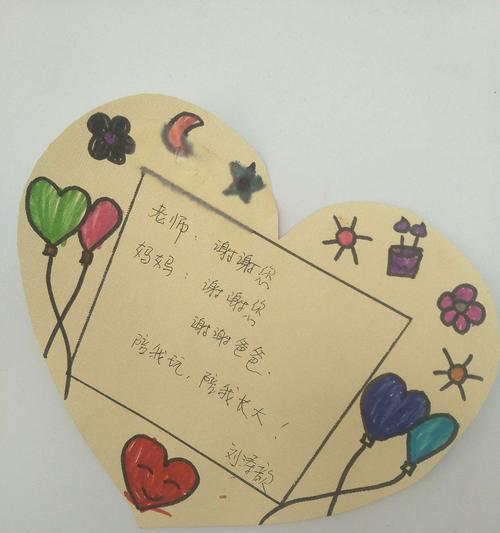 老师：谢谢您
妈妈：谢谢您
谢谢爸爸.
陪我玩，陪我长大！
刘泽歆